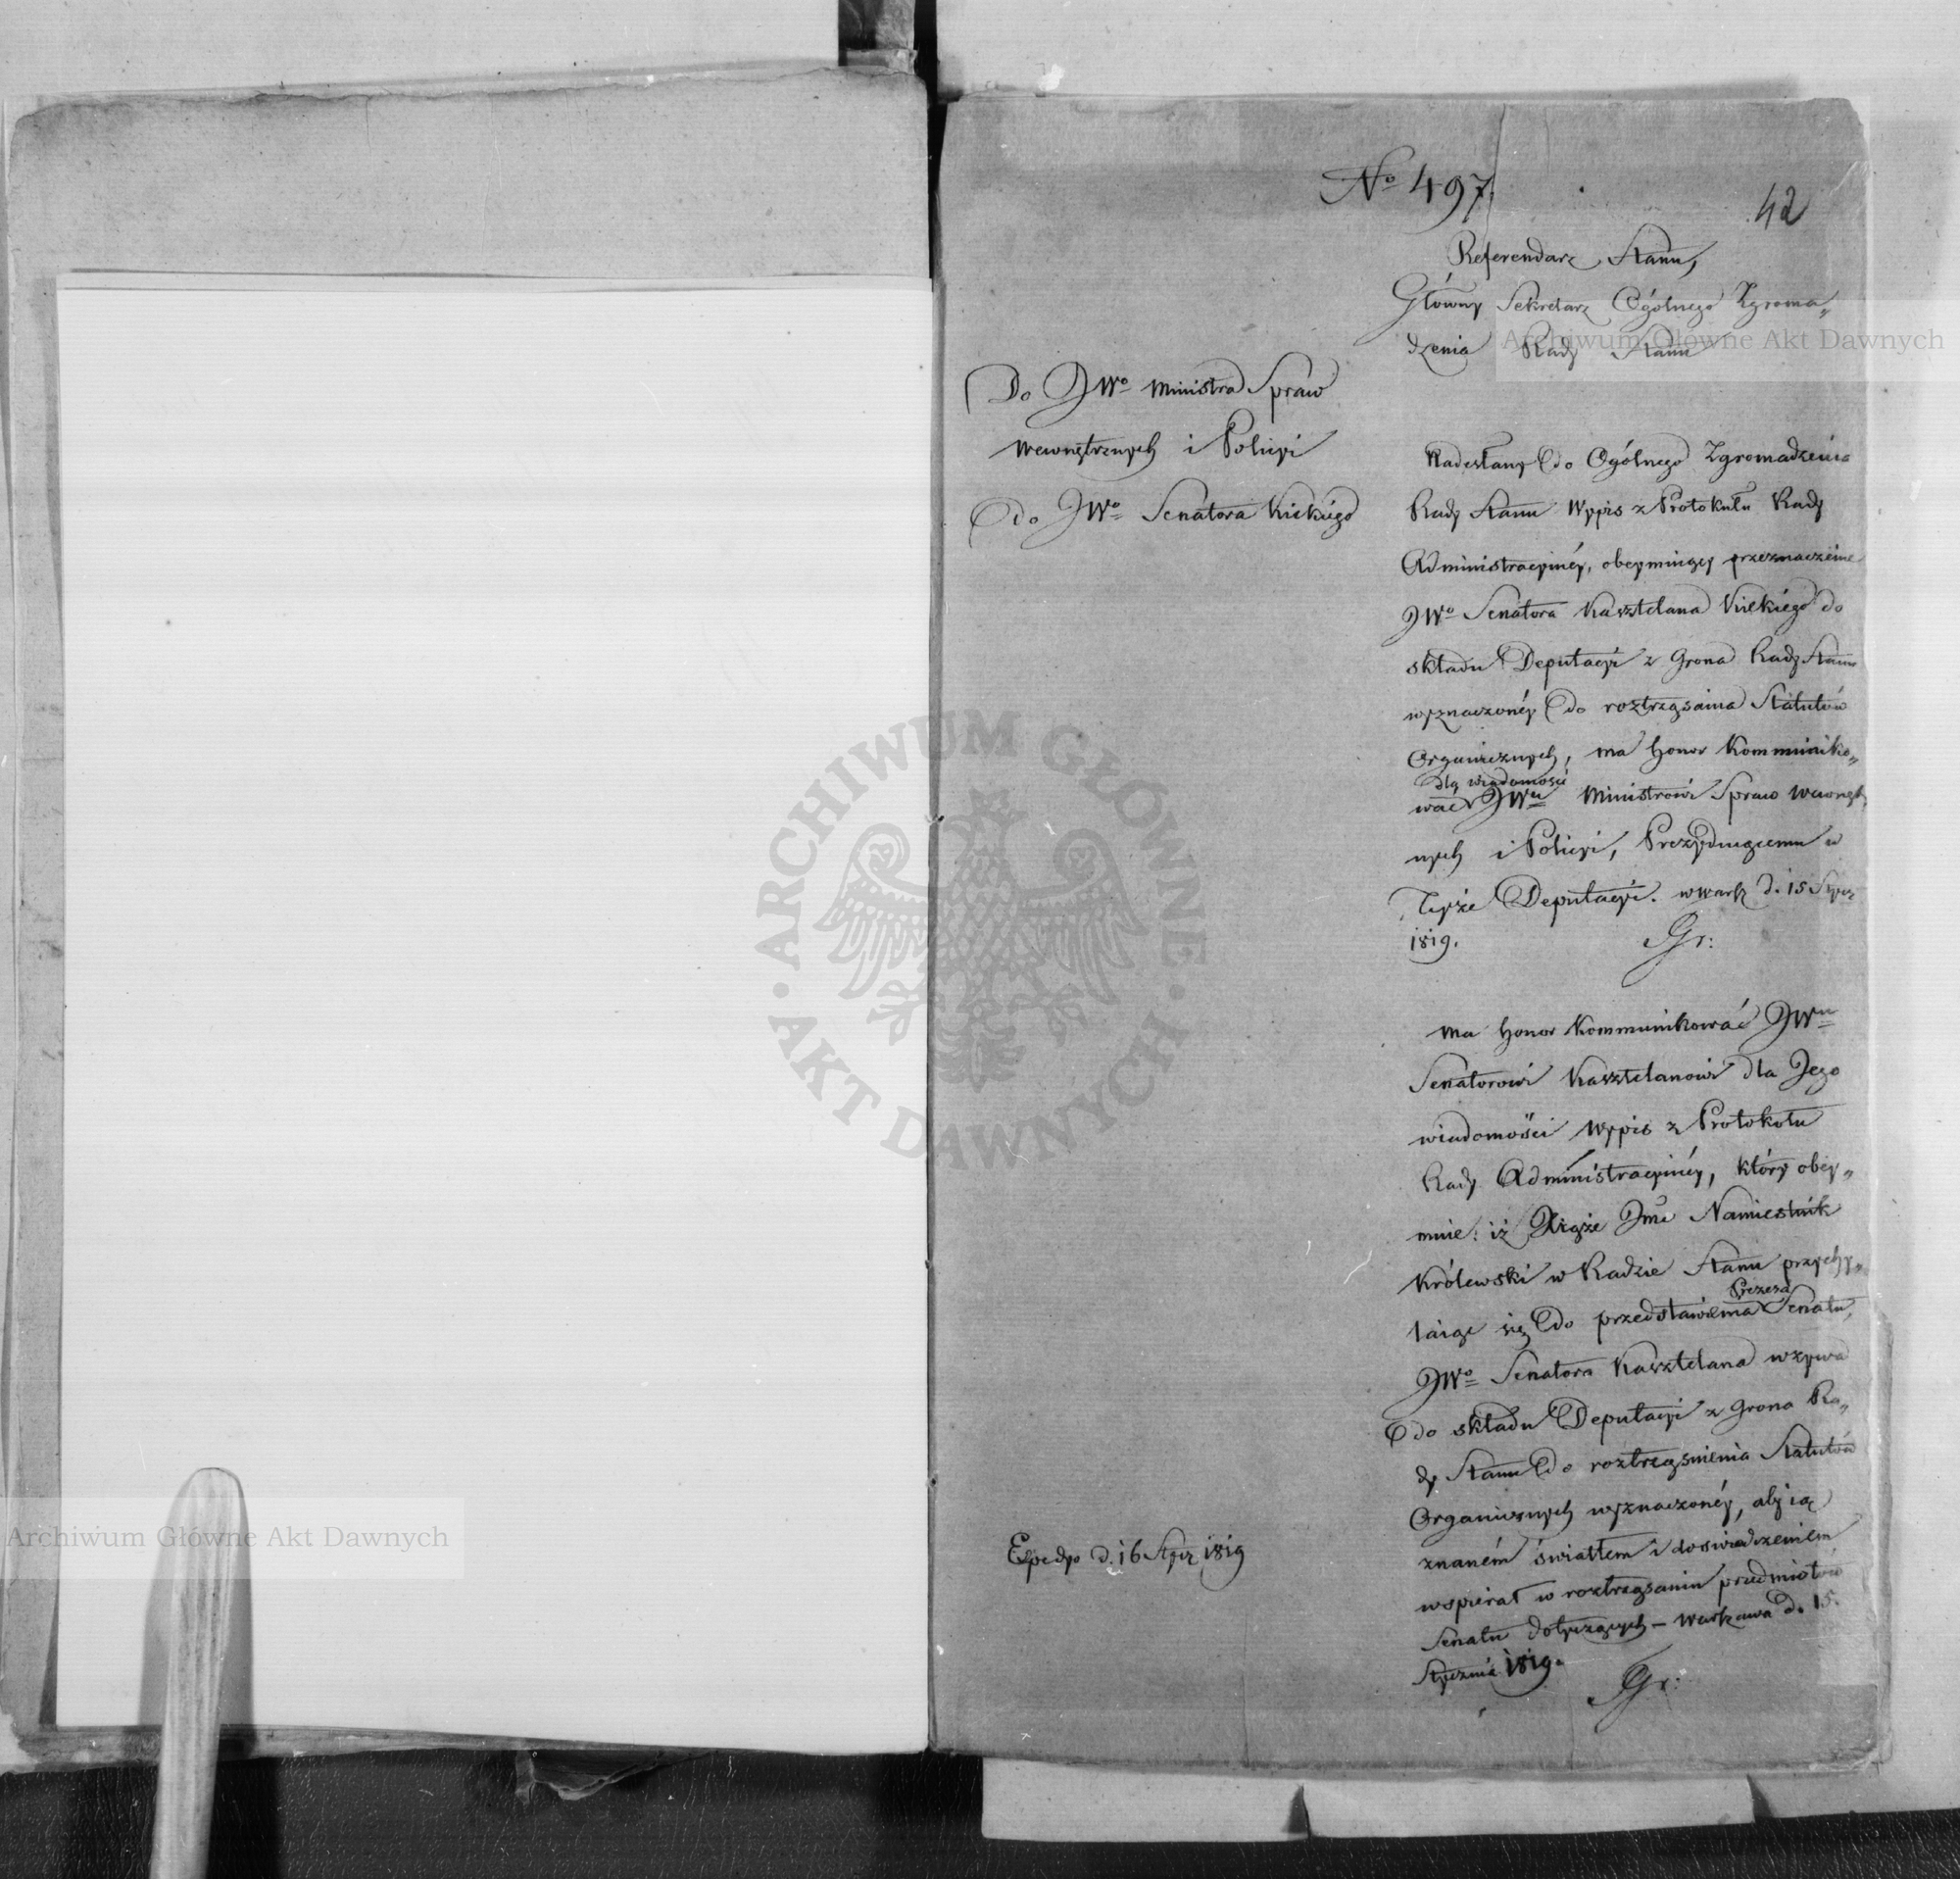 No 497.
42
Referendarz Stanu,
Główny Sekretarz Ogólnego Zgroma„
dzenia Rady Stanu
Do JWo Ministra Spraw
Wewnętrznych i Policyi
Do JWo Senatora Kickiego
Nadesłany do Ogólnego Zgromadzenia
Rady Stanu Wypis z Protokułu Rady
Administracyiney, obeymuiący przeznaczenie
JWo Senatora Kasztelana Kickiego do
składu Deputacyi z Grona Rady Stanu
wyznaczonéy do roztrząsania Statutów
Organicznych, ma honor kommuniko„
dla wiadomości
wać JWu Ministrowi Spraw Wewnętrz
nych i Policyi, Prezyduiącemu w
Teyże Deputacyi. w Warsz d. 15 Stycz
1819.
Gr:
Ma honor kommunikować JWu
Senatorowi Kasztelanowi dla Jego
wiadomości Wypis z Protokołu
Rady Administracyinéy, który obey„
muie: iż Xiąże Jmć Namiestnik
Królewski w Radzie Stanu przychy„
Prezesa
laiąc się do przedstawienia Senatu,
JWo Senatora Kasztelana wzywa
do składu Deputacyi z grona Ra„
dy Stanu do roztrząśnienia Statutów
Organicznych wyznaczonéy, aby ią
znaném światłem i doswiadczeniem
wspierał w roztrząsaniu przedmiotów
Senatu dotyczących – Warszawa d. 15.
Stycznia 1819.
Gr:
Expedyo d. 16 Stycz 1819
Archiwum Główne Akt Dawnych
Archiwum Główne Akt Dawnych
ARCHIWUM GŁÓWNE
AKT DAWNYCH